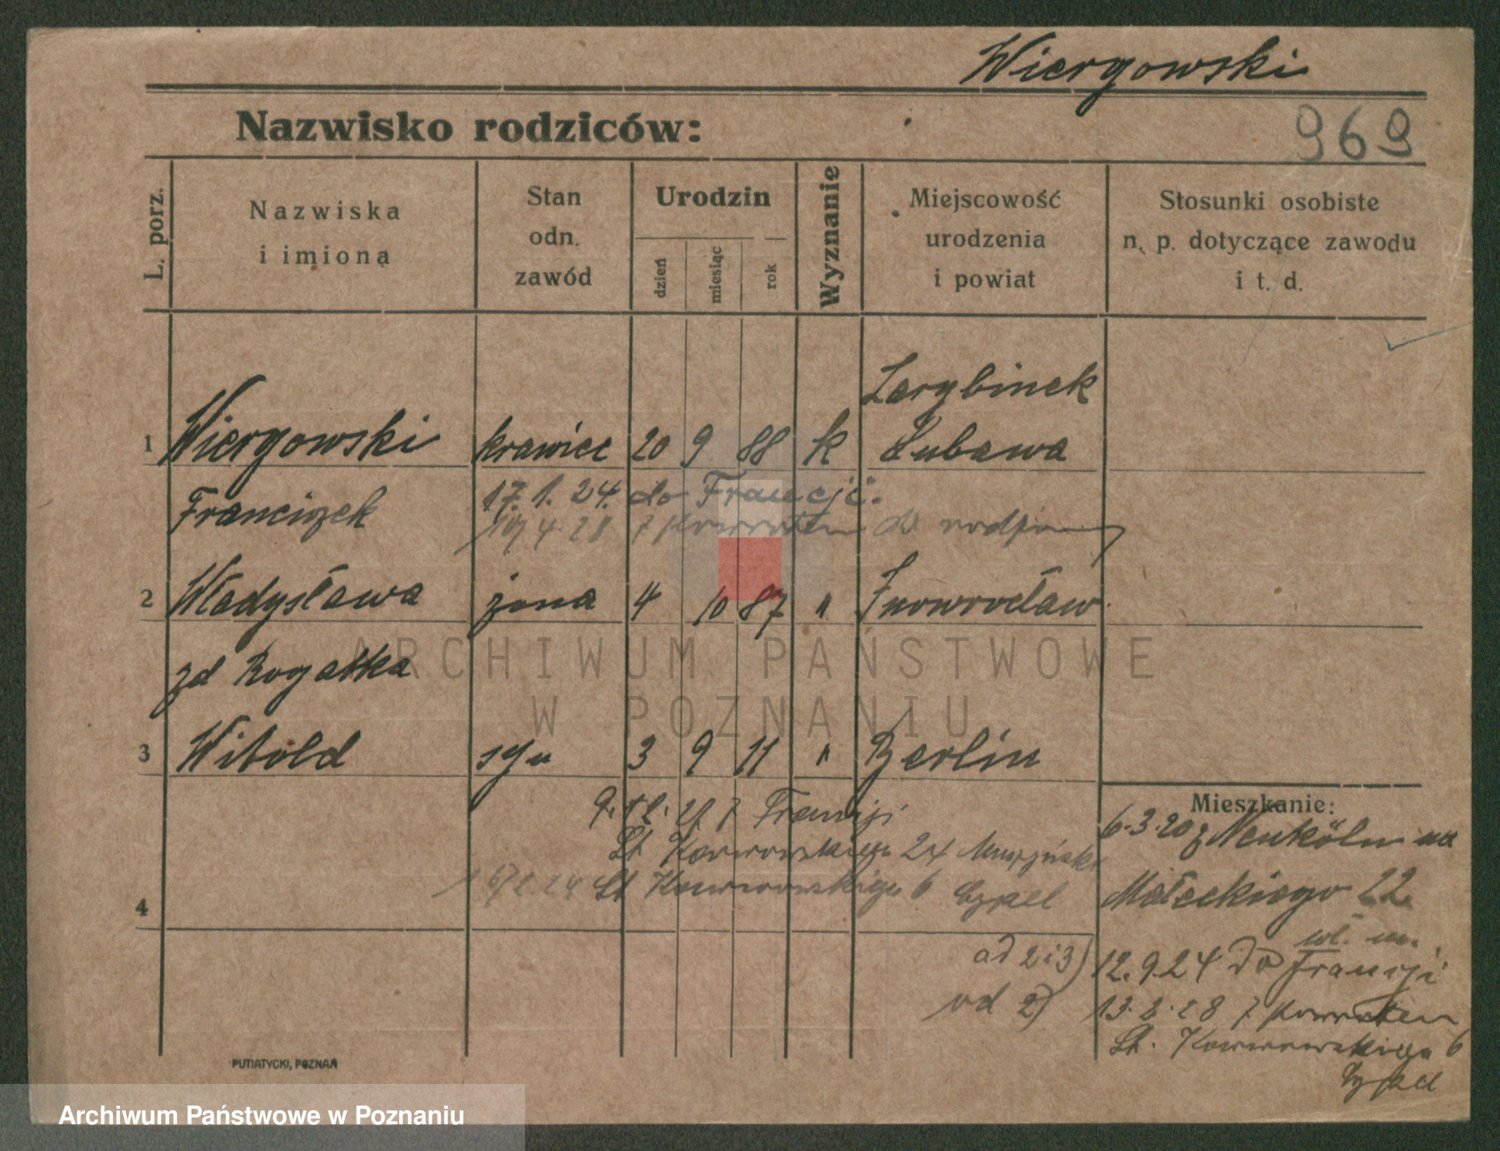 Wiergowski
Nazwisko rodziców:
969
L. porz.
Nazwiska
i imiona
Stan
odn.
zawód
Urodzin
dzień
miesiąc
rok
Wyznanie
Miejscowość
urodzenia
i powiat
Stosunki osobiste
n. p. dotyczące zawodu
i t. d.
Zarybinek
1 Wiergowski krawiec 20 9 88 k Lubawa
Franciszek 17. 1. 24. do Francji.
4. 28 z powrotem
2 Władysława żona 4 10 87 " Inowrocław
zd Rogatka
ARCHIWUM PAŃSTWOWE
W POZNANIU
3 Witold syn 3 9 11 " Berlin
z Francji
Mieszkanie:
6.3.20 z Neukölln
24
6
Małeckiego 22
4
ad 2 i 3) 12.9.24 do Francji
ad 2) 13. 2. 28 z powrotem
6
PUTIATYCKI, POZNAŃ
Archiwum Państwowe w Poznaniu